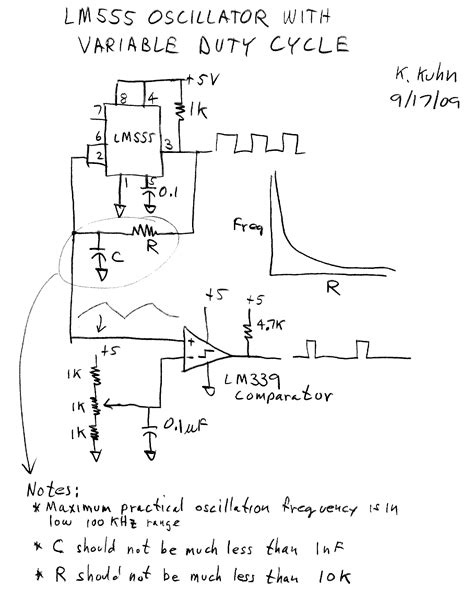 LM555 OSCILLATOR WITH
VARIABLE DUTY CYCLE
K. Kuhn
9/17/09
+5V
8 4
7
1K
6
LM555
3
2
1 5
0.1
R
C
Freq
R
+5
+5
4.7K
+
-
+5
LM339
Comparator
1K
1K
1K
0.1uF
Notes:
* Maximum practical oscillation frequency is in
low 100 KHz range
* C should not be much less than 1nF
* R should not be much less than 10K